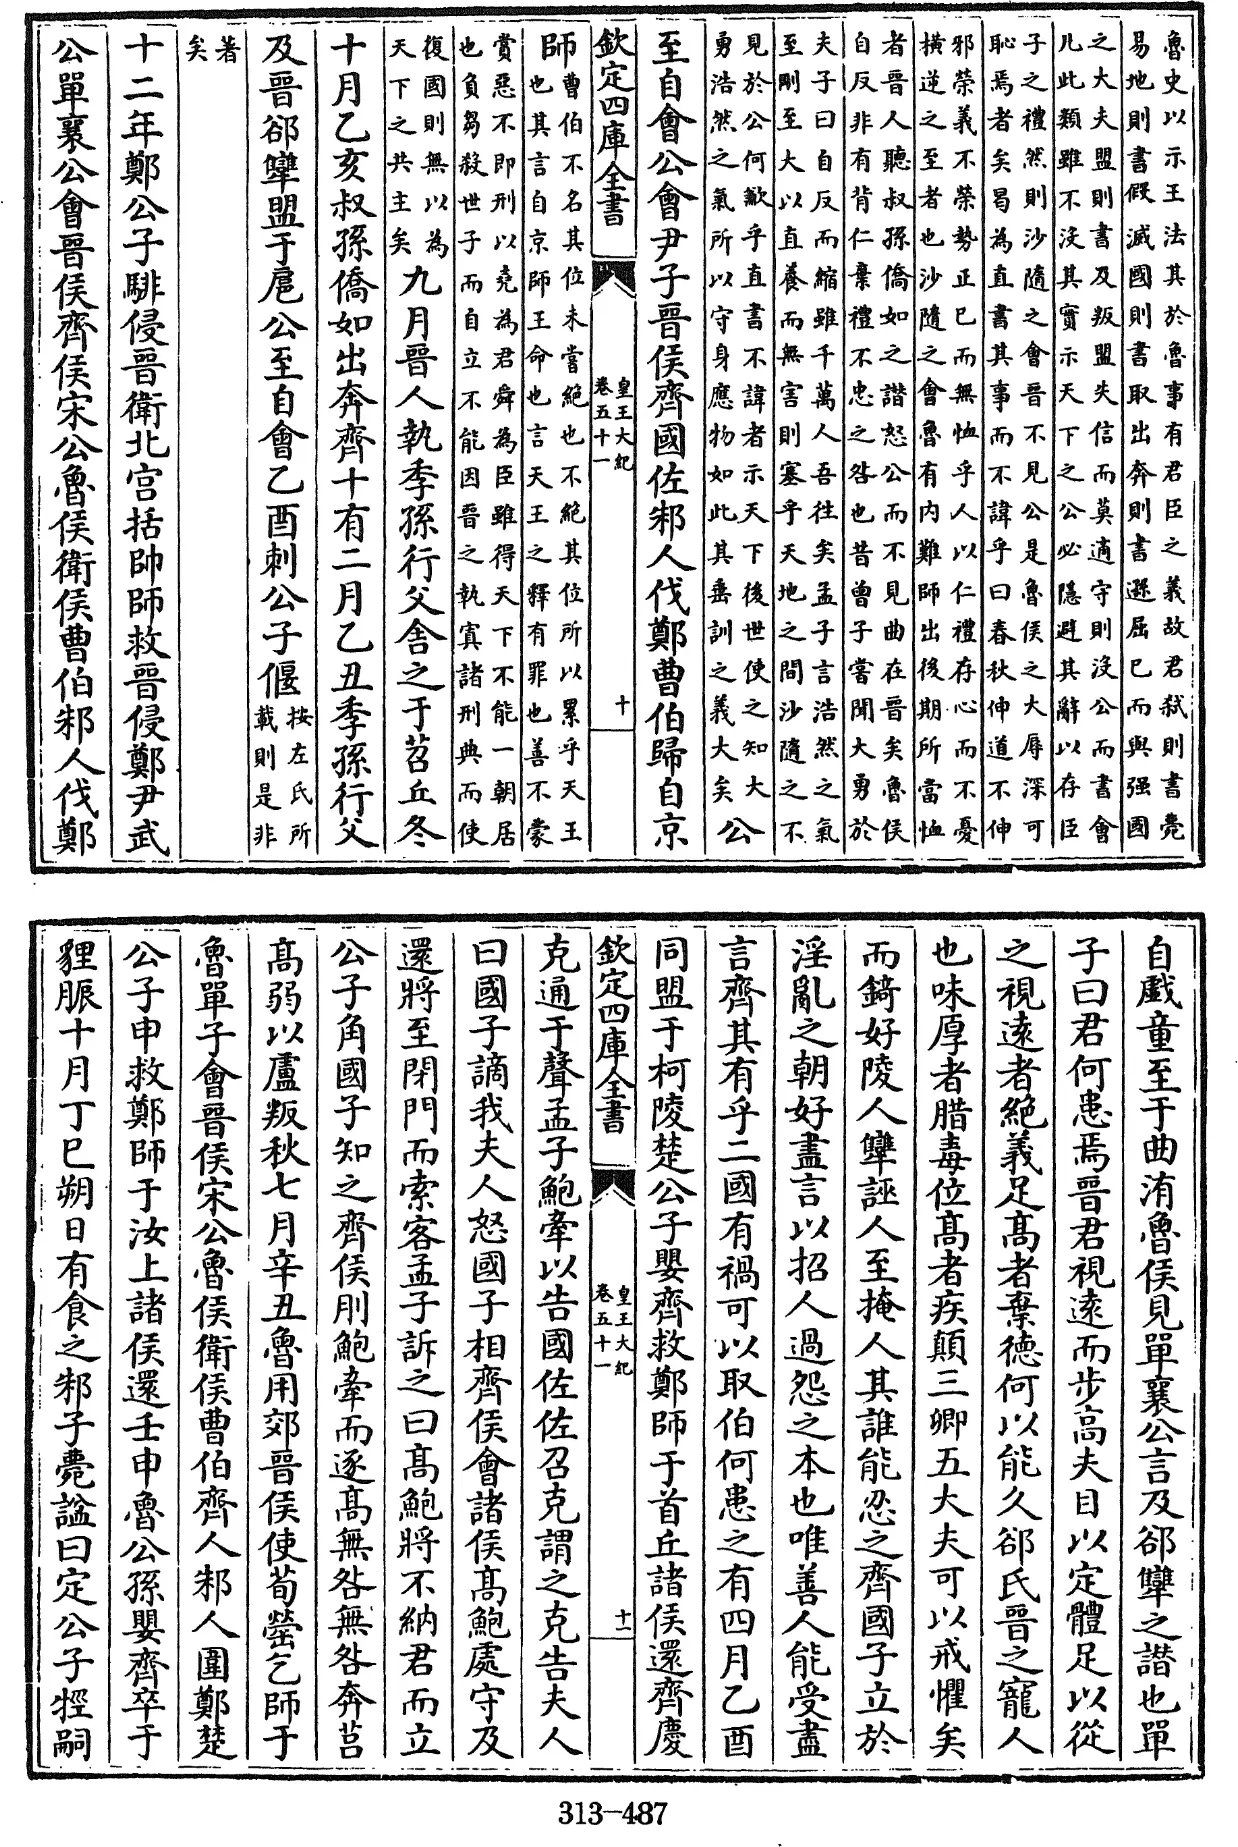 魯史以示王法其於魯事有君臣之義故君弑則書薨
易地則書假滅國則書取出奔則書遜屈已而與强國
之大夫盟則書及叛盟失信而莫適守則沒公而書會
凡此類雖不沒其實示天下之公必隱避其辭以存臣
子之禮然則沙隨之會晉不見公是魯侯之大辱深可
恥焉者矣曷為直書其事而不諱乎曰春秋伸道不伸
邪榮義不榮勢正已而無恤乎人以仁禮存心而不憂
橫逆之至者也沙隨之會魯有内難師出後期所當恤
者晉人聽叔孫僑如之譖怒公而不見曲在晉矣魯侯
自反非有背仁棄禮不忠之咎也昔曾子嘗聞大勇於
夫子曰自反而縮雖千萬人吾往矣孟子言浩然之氣
至剛至大以直養而無害則塞乎天地之間沙隨之不
見於公何歉乎直書不諱者示天下後世使之知大
勇浩然之氣所以守身應物如此其垂訓之義大矣
公
至自會公會尹子晉侯齊國佐邾人伐鄭曹伯歸自京
欽定四庫全書
皇王大紀
卷五十一
十
師
曹伯不名其位未嘗絶也不絶其位所以累乎天王
也其言自京師王命也言天王之釋有罪也善不蒙
賞惡不即刑以堯為君舜為臣雖得天下不能一朝居
也負芻殺世子而自立不能因晉之執寘諸刑典而使
復國則無以為
天下之共主矣
九月晉人執季孫行父舍之于苕丘冬
十月乙亥叔孫僑如出奔齊十有二月乙丑季孫行父
及晉郤犨盟于扈公至自會乙酉刺公子偃
按左氏所
載則是非
著
矣
十二年鄭公子騑侵晉衛北宮括帥師救晉侵鄭尹武
公單襄公會晉侯齊侯宋公魯侯衛侯曹伯邾人伐鄭
自戲童至于曲洧魯侯見單襄公言及郤犨之譖也單
子曰君何患焉晉君視遠而步高夫目以定體足以從
之視遠者絶義足高者棄德何以能久郤氏晉之寵人
也味厚者腊毒位高者疾顛三卿五大夫可以戒懼矣
而錡好陵人犨誣人至掩人其誰能忍之齊國子立於
淫亂之朝好盡言以招人過怨之本也唯善人能受盡
言齊其有乎二國有禍可以取伯何患之有四月乙酉
同盟于柯陵楚公子嬰齊救鄭師于首丘諸侯還齊慶
欽定四庫全書
皇王大紀
卷五十一
十一
克通于聲孟子鮑牽以告國佐佐召克謂之克告夫人
曰國子謫我夫人怒國子相齊侯會諸侯高鮑處守及
還將至閉門而索客孟子訴之曰高鮑將不納君而立
公子角國子知之齊侯刖鮑牽而逐高無咎無咎奔莒
高弱以盧叛秋七月辛丑魯用郊晉侯使荀罃乞師于
魯單子會晉侯宋公魯侯衛侯曹伯齊人邾人圍鄭楚
公子申救鄭師于汝上諸侯還壬申魯公孫嬰齊卒于
貍脤十月丁巳朔日有食之邾子薨謚曰定公子牼嗣
313-487